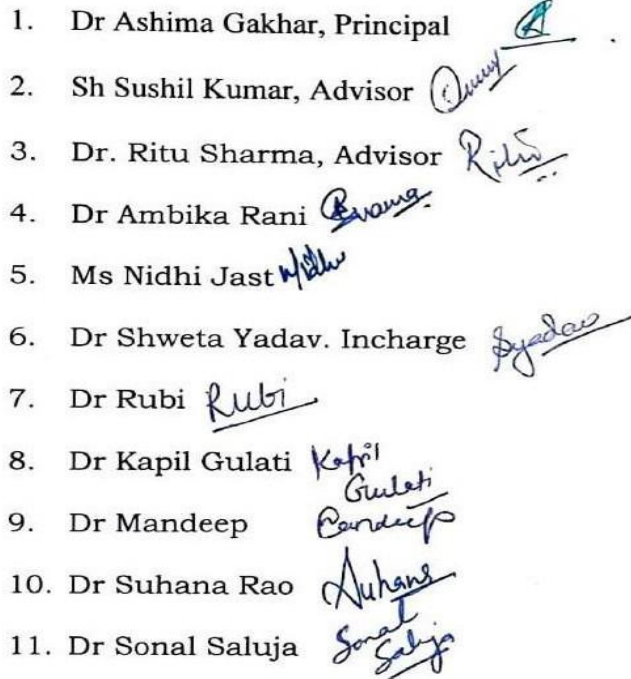 1. Dr Ashima Gakhar, Principal
2. Sh Sushil Kumar, Advisor
3. Dr. Ritu Sharma, Advisor Ritu
4. Dr Ambika Rani
5. Ms Nidhi Jast Nidhi
6. Dr Shweta Yadav. Incharge Syadav
7. Dr Rubi Rubi
8. Dr Kapil Gulati Kapil
Gulati
9. Dr Mandeep
10. Dr Suhana Rao Suhana
11. Dr Sonal Saluja Sonal
Saluja